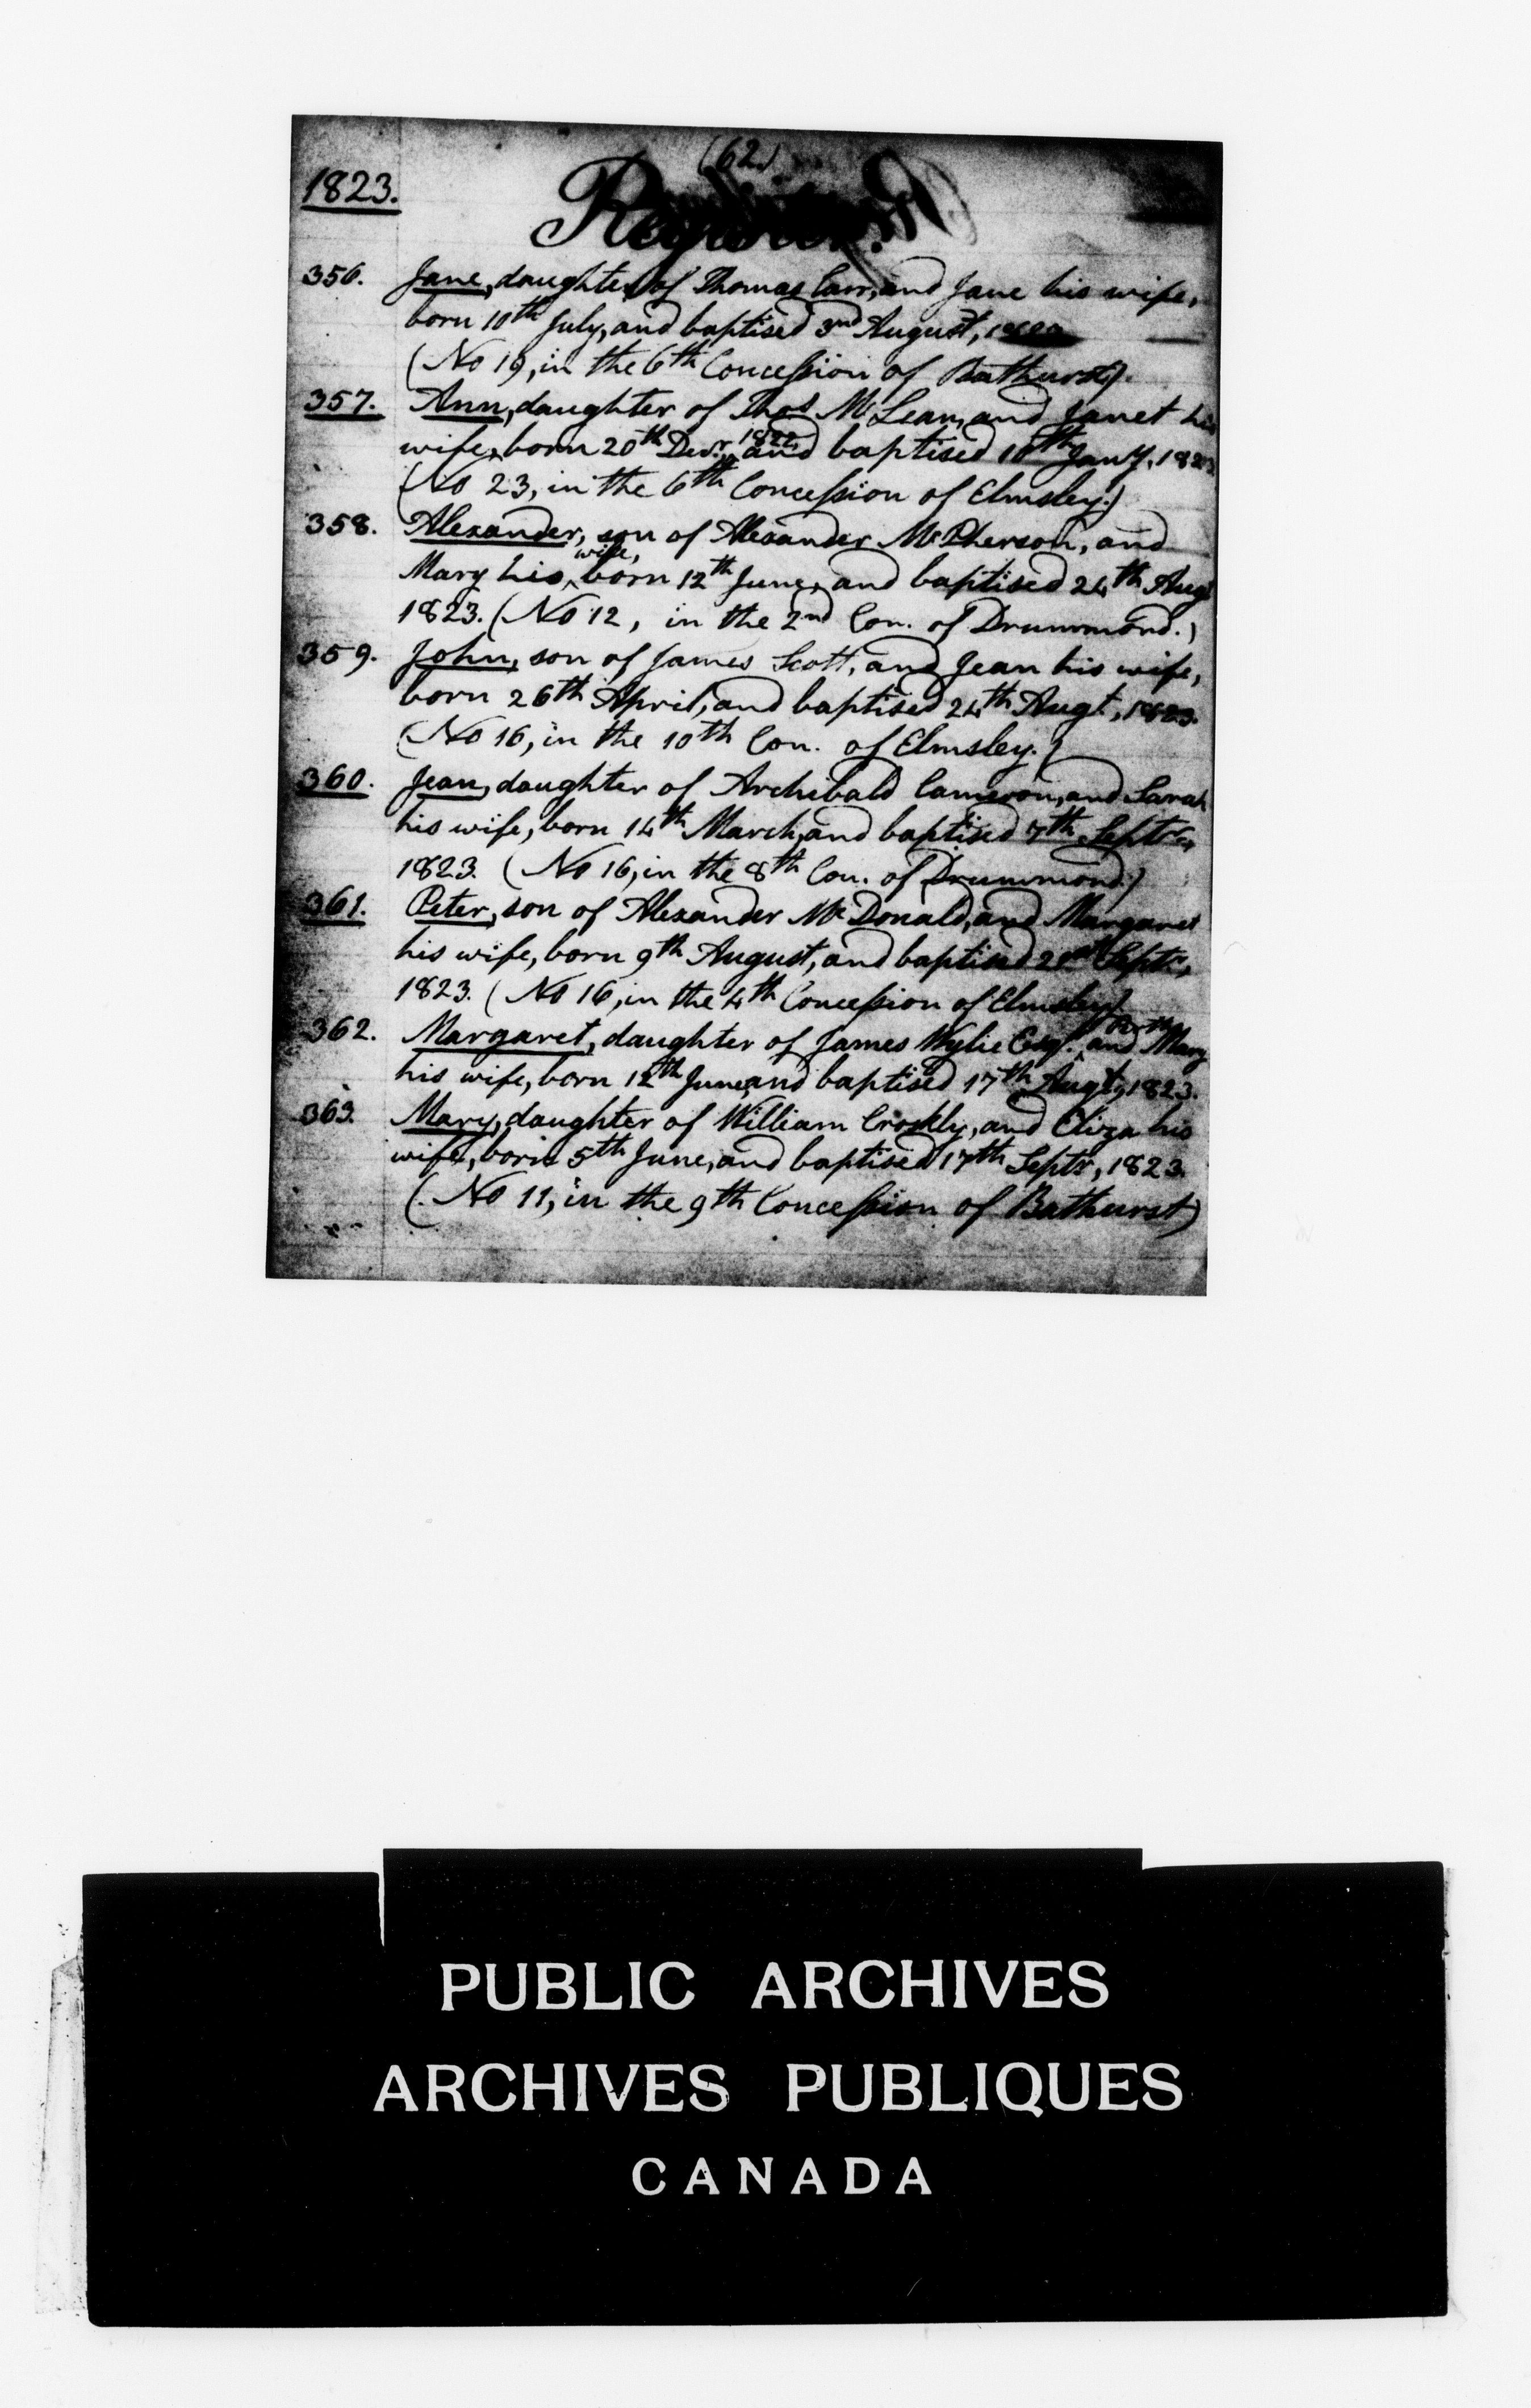 (62.)
1823.
Register.
356. Jane, daughter of Thomas Carr, and Jane his wife,
born 10th July, and baptised 3nd August,
(No 19, in the 6th Concession of Bathurst).
357. Ann, daughter of Thos McLean, and Janet his
wife, born 20th Decr. 1822, and baptised 10th Jany, 1823
(No 23, in the 6th Concession of Elmsley.)
358. Alexander, son of Alexander McPherson, and
Mary his wife, born 12th June, and baptised 24th Augt
1823. (No 12, in the 2nd Con. of Drummond.)
359. John, son of James Scott, and Jean his wife,
born 26th April, and baptised 24th Augt, 1823.
(No 16, in the 10th Con. of Elmsley.)
360. Jean, daughter of Archibald Cameron, and Sarah
his wife, born 14th March, and baptised 7th Septr,
1823. (No 16, in the 8th Con. of Drummond.)
361. Peter, son of Alexander McDonald, and Margaret
his wife, born 9th August, and baptised 21st Septr,
1823. (No 16, in the 4th Concession of Elmsley)
362. Margaret, daughter of James Wylie Esqr. Perth and Mary
his wife, born 12th June, and baptised 17th Augt, 1823.
363. Mary, daughter of William Crockly, and Eliza his
wife, born 5th June, and baptised 17th Septr, 1823.
(No 11, in the 9th Concession of Bathurst)
PUBLIC ARCHIVES
ARCHIVES PUBLIQUES
CANADA